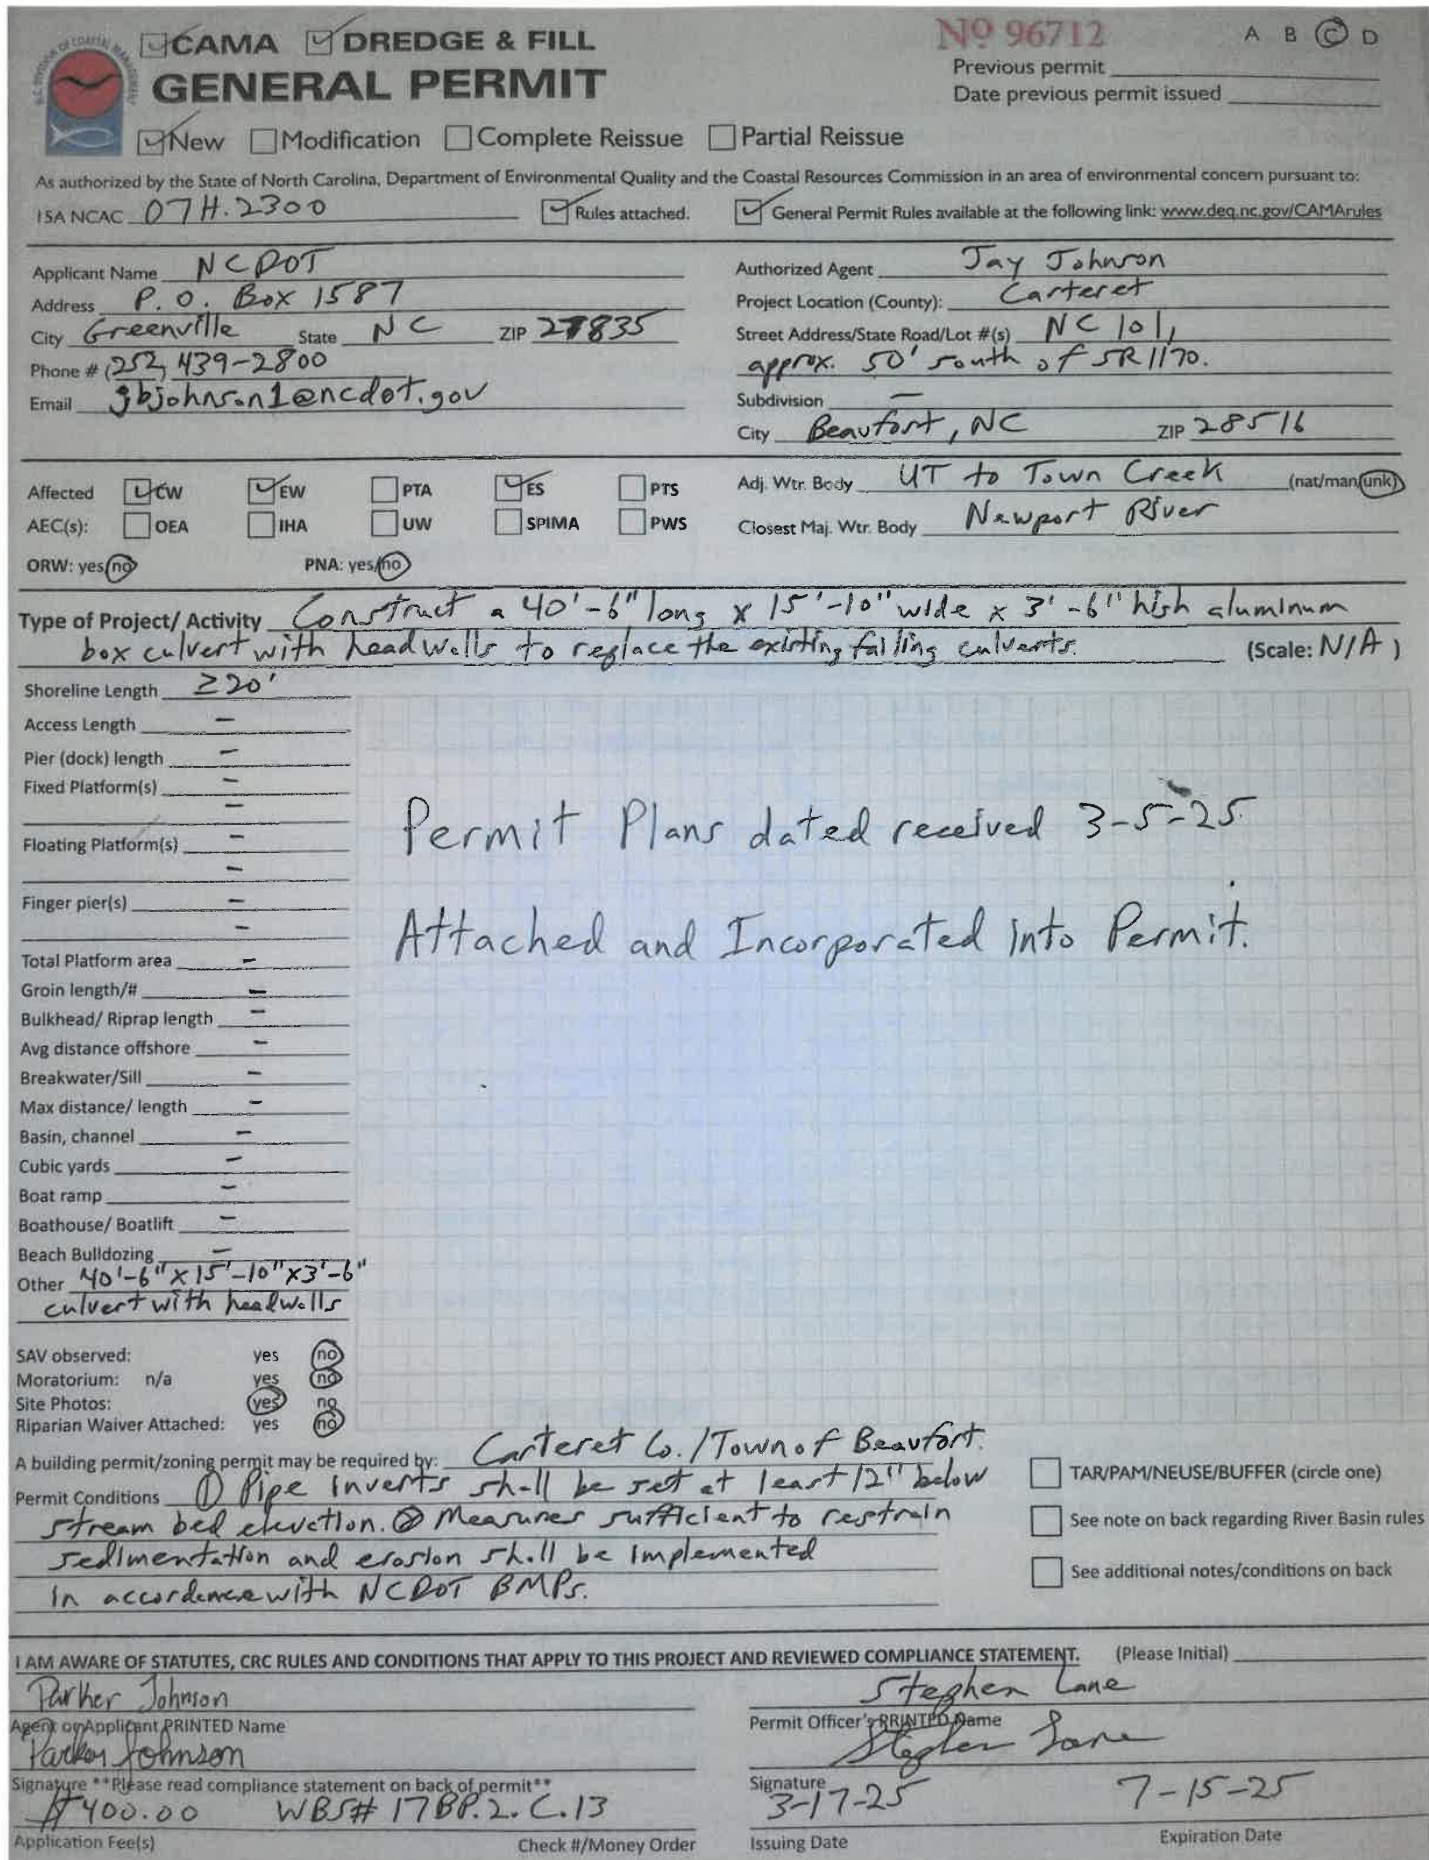 CAMA DREDGE & FILL
GENERAL PERMIT
Nº 96712 A B C D
Previous permit
Date previous permit issued
New Modification Complete Reissue Partial Reissue
As authorized by the State of North Carolina, Department of Environmental Quality and the Coastal Resources Commission in an area of environmental concern pursuant to:
15A NCAC 07H.2300 Rules attached. General Permit Rules available at the following link: www.deq.nc.gov/CAMArules
Applicant Name NCDOT
Address P.O. Box 1587
City Greenville State NC ZIP 27835
Phone # (252) 439-2800
Email gbjohnson1@ncdot.gov
Authorized Agent Jay Johnson
Project Location (County): Carteret
Street Address/State Road/Lot #(s) NC 101,
approx. 50' south of SR 1170.
Subdivision —
City Beaufort, NC ZIP 28516
Affected CW EW PTA ES PTS
AEC(s): OEA IHA UW SPIMA PWS
ORW: yes/no PNA: yes/no
Adj. Wtr. Body UT to Town Creek (nat/man/unk)
Closest Maj. Wtr. Body Newport River
Type of Project/ Activity Construct a 40'-6" long x 15'-10" wide x 3'-6" high aluminum
box culvert with headwalls to replace the existing failing culverts. (Scale: N/A)
Shoreline Length ≥20'
Access Length –
Pier (dock) length –
Fixed Platform(s) –
–
Floating Platform(s) –
–
Finger pier(s) –
–
Total Platform area –
Groin length/# –
Bulkhead/ Riprap length –
Avg distance offshore –
Breakwater/Sill –
Max distance/ length –
Basin, channel –
Cubic yards –
Boat ramp –
Boathouse/ Boatlift –
Beach Bulldozing –
Other 40'-6" x 15'-10" x 3'-6"
culvert with headwalls
Permit Plans dated received 3-5-25.
Attached and Incorporated into Permit.
SAV observed: yes no
Moratorium: n/a yes no
Site Photos: yes no
Riparian Waiver Attached: yes no
A building permit/zoning permit may be required by: Carteret Co. / Town of Beaufort.
Permit Conditions ① Pipe Inverts shall be set at least 12" below
stream bed elevation. ② Measures sufficient to restrain
sedimentation and erosion shall be implemented
in accordance with NCDOT BMPs.
TAR/PAM/NEUSE/BUFFER (circle one)
See note on back regarding River Basin rules
See additional notes/conditions on back
I AM AWARE OF STATUTES, CRC RULES AND CONDITIONS THAT APPLY TO THIS PROJECT AND REVIEWED COMPLIANCE STATEMENT. (Please Initial)
Parker Johnson
Agent or Applicant PRINTED Name
Parker Johnson
Signature **Please read compliance statement on back of permit**
$400.00 WBS# 17BP.2.C.13
Application Fee(s) Check #/Money Order
Stephen Lane
Permit Officer's PRINTED Name
Stephen Lane
Signature
3-17-25 7-15-25
Issuing Date Expiration Date